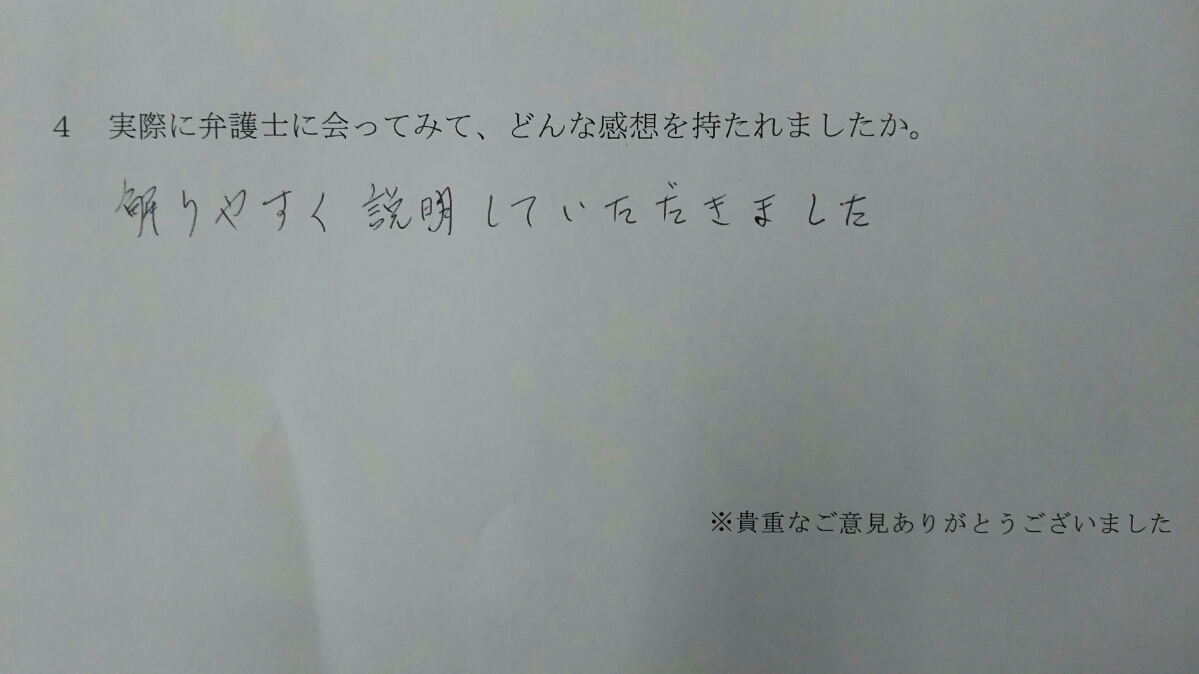 ４　実際に弁護士に会ってみて、どんな感想を持たれましたか。
解りやすく説明していただきました
※貴重なご意見ありがとうございました